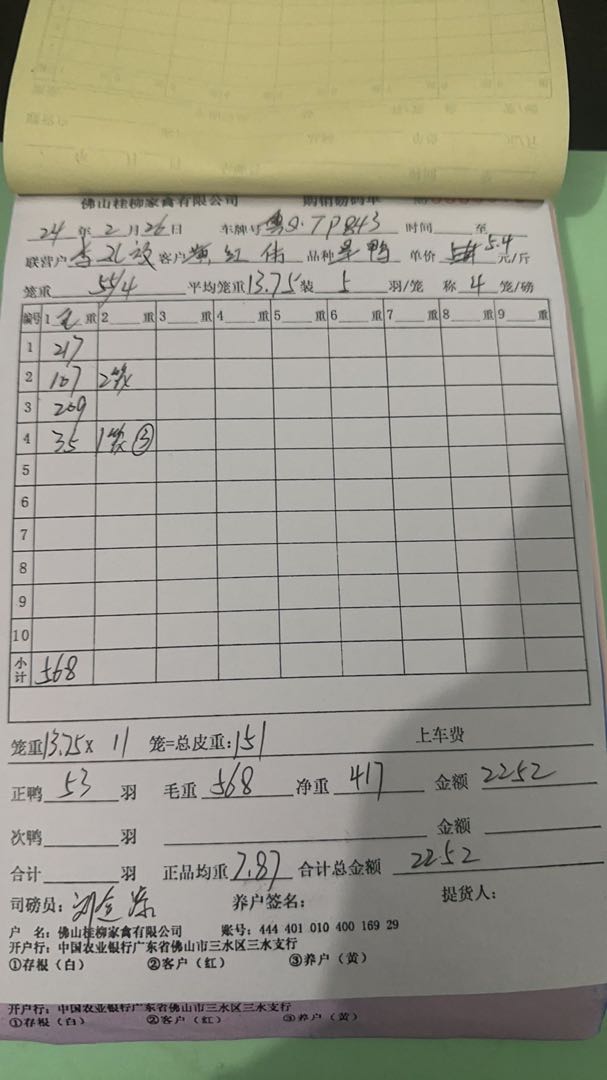 佛山桂柳家禽有限公司 购销磅码单
24年2月26日 车牌号粤Q·7P843 时间 至
联营户 李 客户 黄红伟 品种 鸭 单价 5.4元/斤
笼重 55/4 平均笼重13.75装 5 羽/笼 称 4 笼/磅
编号 1 毛 重 2 重 3 重 4 重 5 重 6 重 7 重 8 重 9 重
1 217
2 107 2笼
3 209
4 35 1笼③
5
6
7
8
9
10
小计 568
笼重13.75× 11 笼=总皮重:151 上车费
正鸭 53 羽 毛重 568 净重 417 金额 2252
次鸭 羽 金额
合计 羽 正品均重7.87 合计总金额 2252
司磅员: 养户签名: 提货人:
户 名:佛山桂柳家禽有限公司 账号:444 401 010 400 169 29
开户行:中国农业银行广东省佛山市三水区三水支行
①存根(白) ②客户(红) ③养户(黄)
开户行:中国农业银行广东省佛山市三水区三水支行
①存根(白) ②客户(红) ③养户(黄)